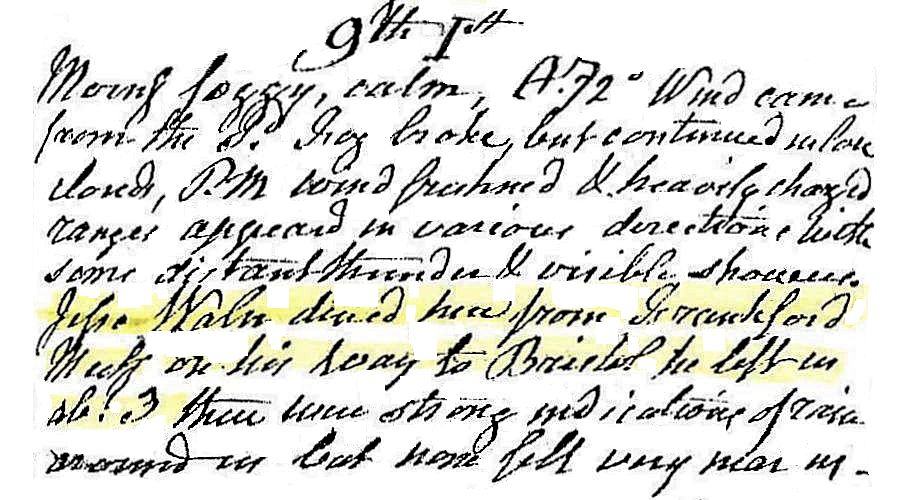 9th Inst
Morng foggy, calm, At. 72° Wind came
from the So. Fog broke, but continued in low
clouds, PM wind freshned & heavily charged
ranges appeard in various directions with
some distant thunder & visible showers.
Jesse Waln dined here from Frankford
Meetg on his way to Bristol he left us
abt. 3 there were strong indications of rain
around us but none fell very near us.